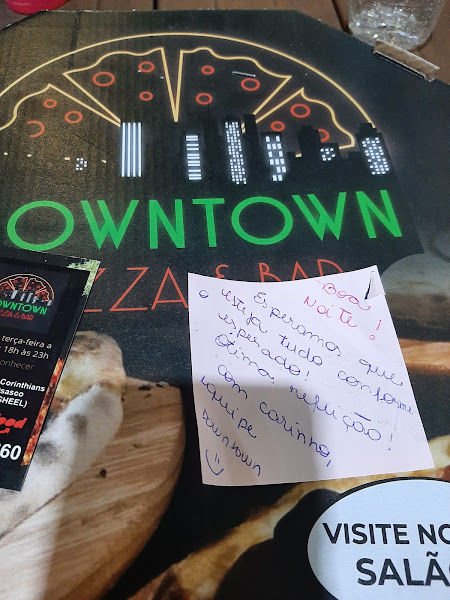 OWNTOWN
ZZA & BAR
OWNTOWN
ZZA & BAR
terça-feira a
18h às 23h
onhecer
Corinthians
sasco
GHEEL)
ood
60
Boa
Noite!
Esperamos que
esteja tudo conforme
esperado!
Ótima refeição!
com carinho,
equipe
Downtown
VISITE NO
SALÃ